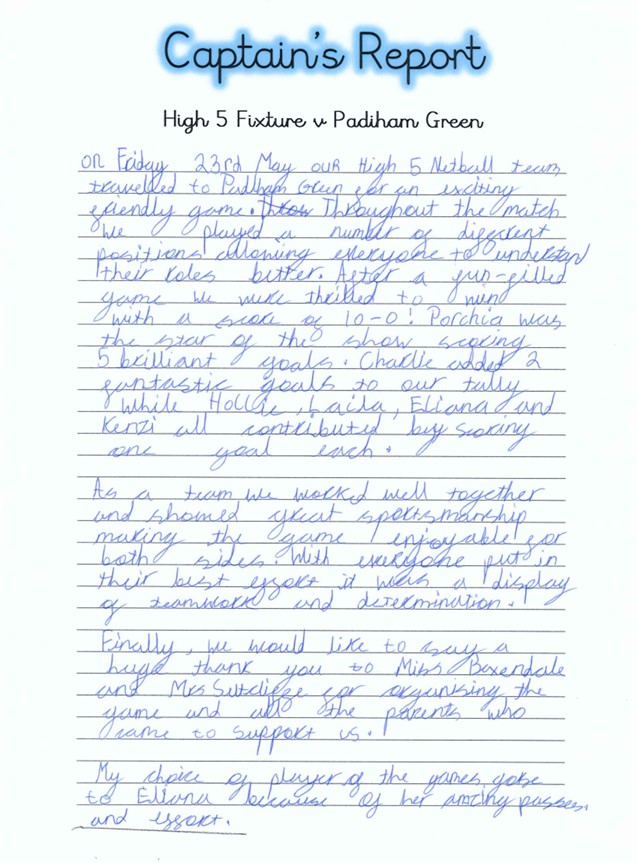 Captain's Report
High 5 Fixture v Padiham Green
on Friday 23rd May our High 5 Netball team
travelled to Padiham Green for an exciting
friendly game. Throughout the match
we played a number of different
positions allowing everyone to understand
their roles better. After a fun-filled
game we were thrilled to win
with a score of 10-0! Porchia was
the star of the show scoring
5 brilliant goals. Charlie added 2
fantastic goals to our tally
while Hollie, Laila, Eliana and
Kenzi all contributed by scoring
one goal each.
As a team we worked well together
and showed great sportsmanship
making the game enjoyable for
both sides. With everyone put in
their best effort it was a display
of teamwork and determination.
Finally, we would like to say a
huge thank you to Miss Baxendale
and Mrs Sutcliffe for organising the
game and all the parents who
came to support us.
My choice of player of the games gose
to Eliana because of her amzing passes
and effort.